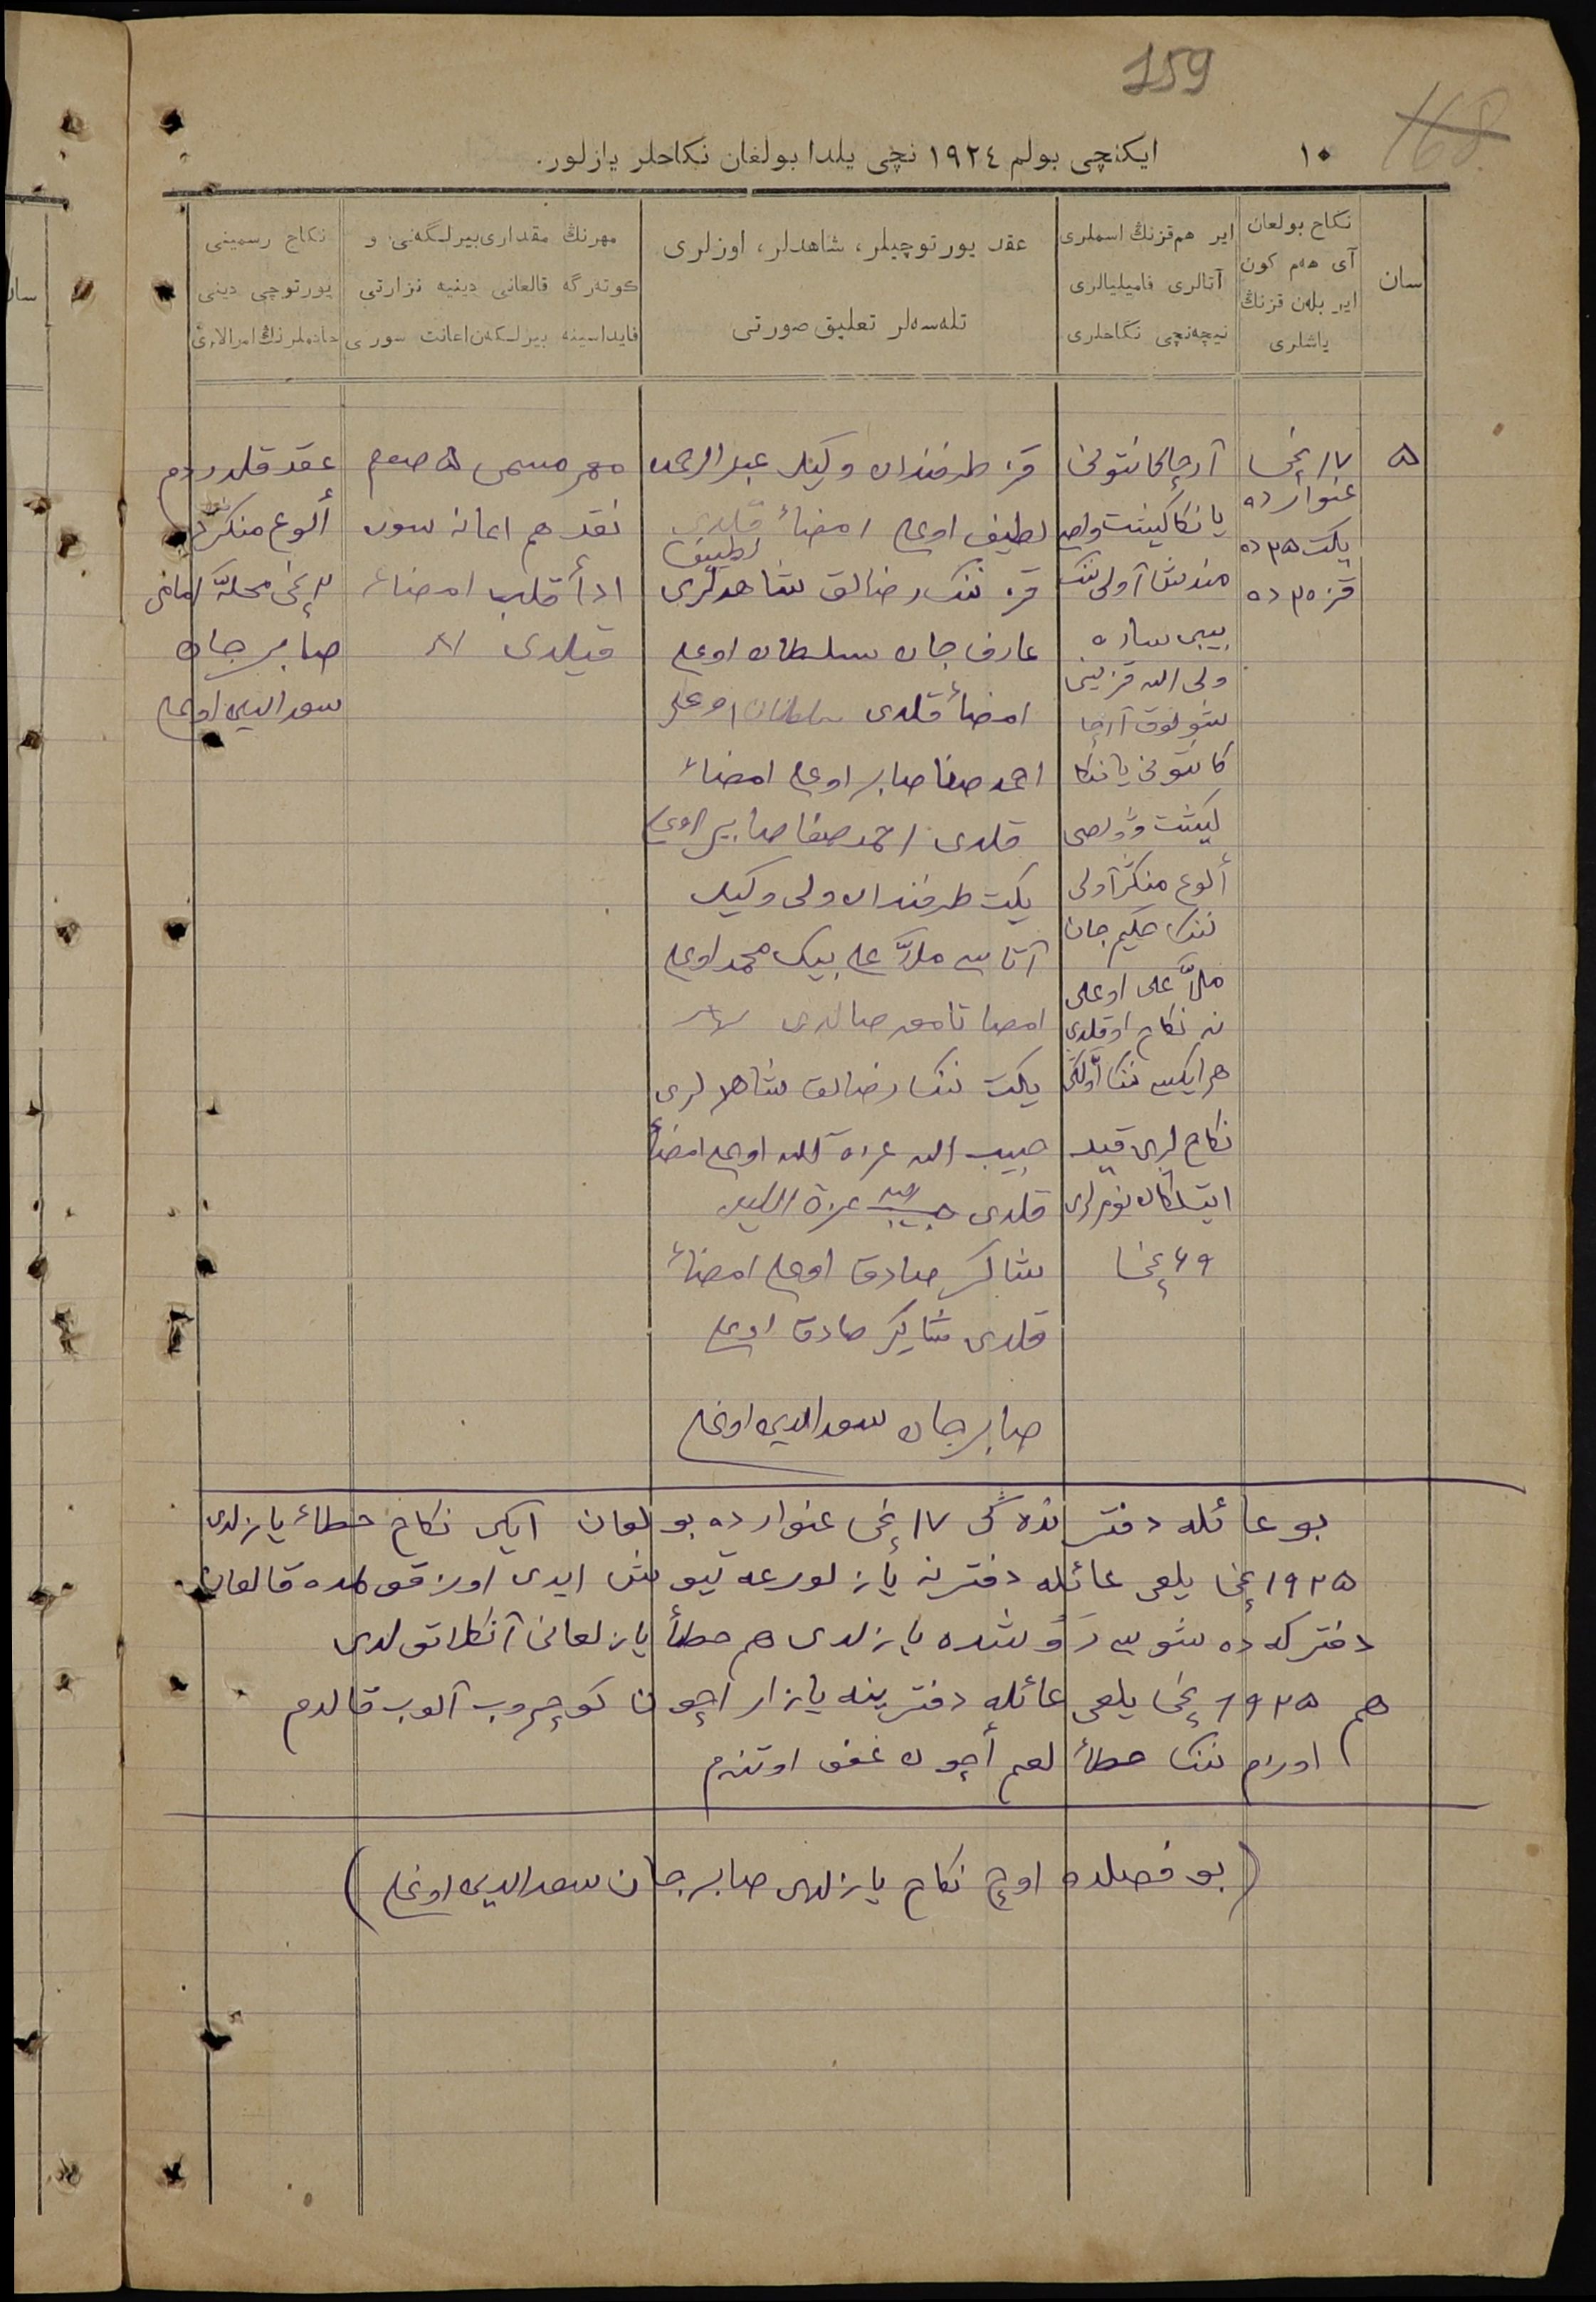 159
168
١٠
ایکنچی بولم ١٩٢٤ نچی یلدا بولغان نکاحلر یازلور.
سان
نکاح بولغان
آی هەم کون
ایر بلەن قزنڭ
یاشلری
ایر هم قزنڭ اسملری
آتالری فامیلیالری
نیچەنچی نگاحلری
عقد یورتوچیلر، شاهدلر، اوزلری
تلەسەلر تعلیق صورتی
مهرنڭ مقداری بیرلگەنی و
کوتەرگە قالغانی دینیه نزارتی
فایداسینه بیرلگەن اعانت سوری
نکاح رسمینی
یورتوچی دینی
خادملرنڭ امزالاری
٥
١٧ نچی
غنوارده
یکت ٢٥ ده
قز ٢٠ ده
آرچا کانتونی
یانکا کینت
آولی ننک
بیبی ساره
ولی الله قزینی
شولوق آرچا
کانتونی یانکا
کینت ولصی
ألوغ منگر آولی
ننک حکیم جان
ملا علی اوغلی
نه نکاح اوقلدی
هر ایکیسی ننک أولگی
نکاح لری قید
ایتلگان نومرلری
نچی
قز طرفندان وکیل عبدالرحمن
لطیف اوغلی امضأ قلدی
لطیف
قز ننک رضالق شاهدلری
عارف جان سلطان اوغلی
امضأ قلدی سلطان اوغلی
احمد صفا صابر اوغلی امضأ
قلدی احمد صفا صابر اوغلی
یکت طرفندان ولی وکیل
آتاسی ملا علی بیک محمد اوغلی
امضا تامغه صالدی
یکت ننک رضالق شاهدلری
حبیب الله عزة الله اوغلی امضأ
قلدی حبیب الله عزة الله
شاکر صادق اوغلی امضأ
قلدی شاکر صادق اوغلی
صابرجان سعدالدین اوغلی
مهر مسمی ٥ صوم
نقد هم اعانه سون
ادأ قلب امضأ
قیلدی
عقد قلدردم
ألوغ منگر
٢ نچی محله امامی
صابرجان
سعدالدین اوغلی
بو عائله دفترنده گی ١٧ نچی غنوارده بولغان ایکی نکاح خطأ یازلدی
١٩٢٥ نچی یلغی عائله دفترنه یازلورغه تیوش ایدی اوزم قولمده قالغان
دفترکه ده شوسی رَوشده یازلدی هم خطأ یازلغانی آنکلاتولدی
هم ١٩٢٥ نچی یلغی عائله دفترینه یازار اچون کوچروب آلوب قالدم
اوزم ننک خطأ لغم أچون عفو اوتنم
(بو فصلده اوچ نکاح یازلدی صابرجان سعدالدین اوغلی)